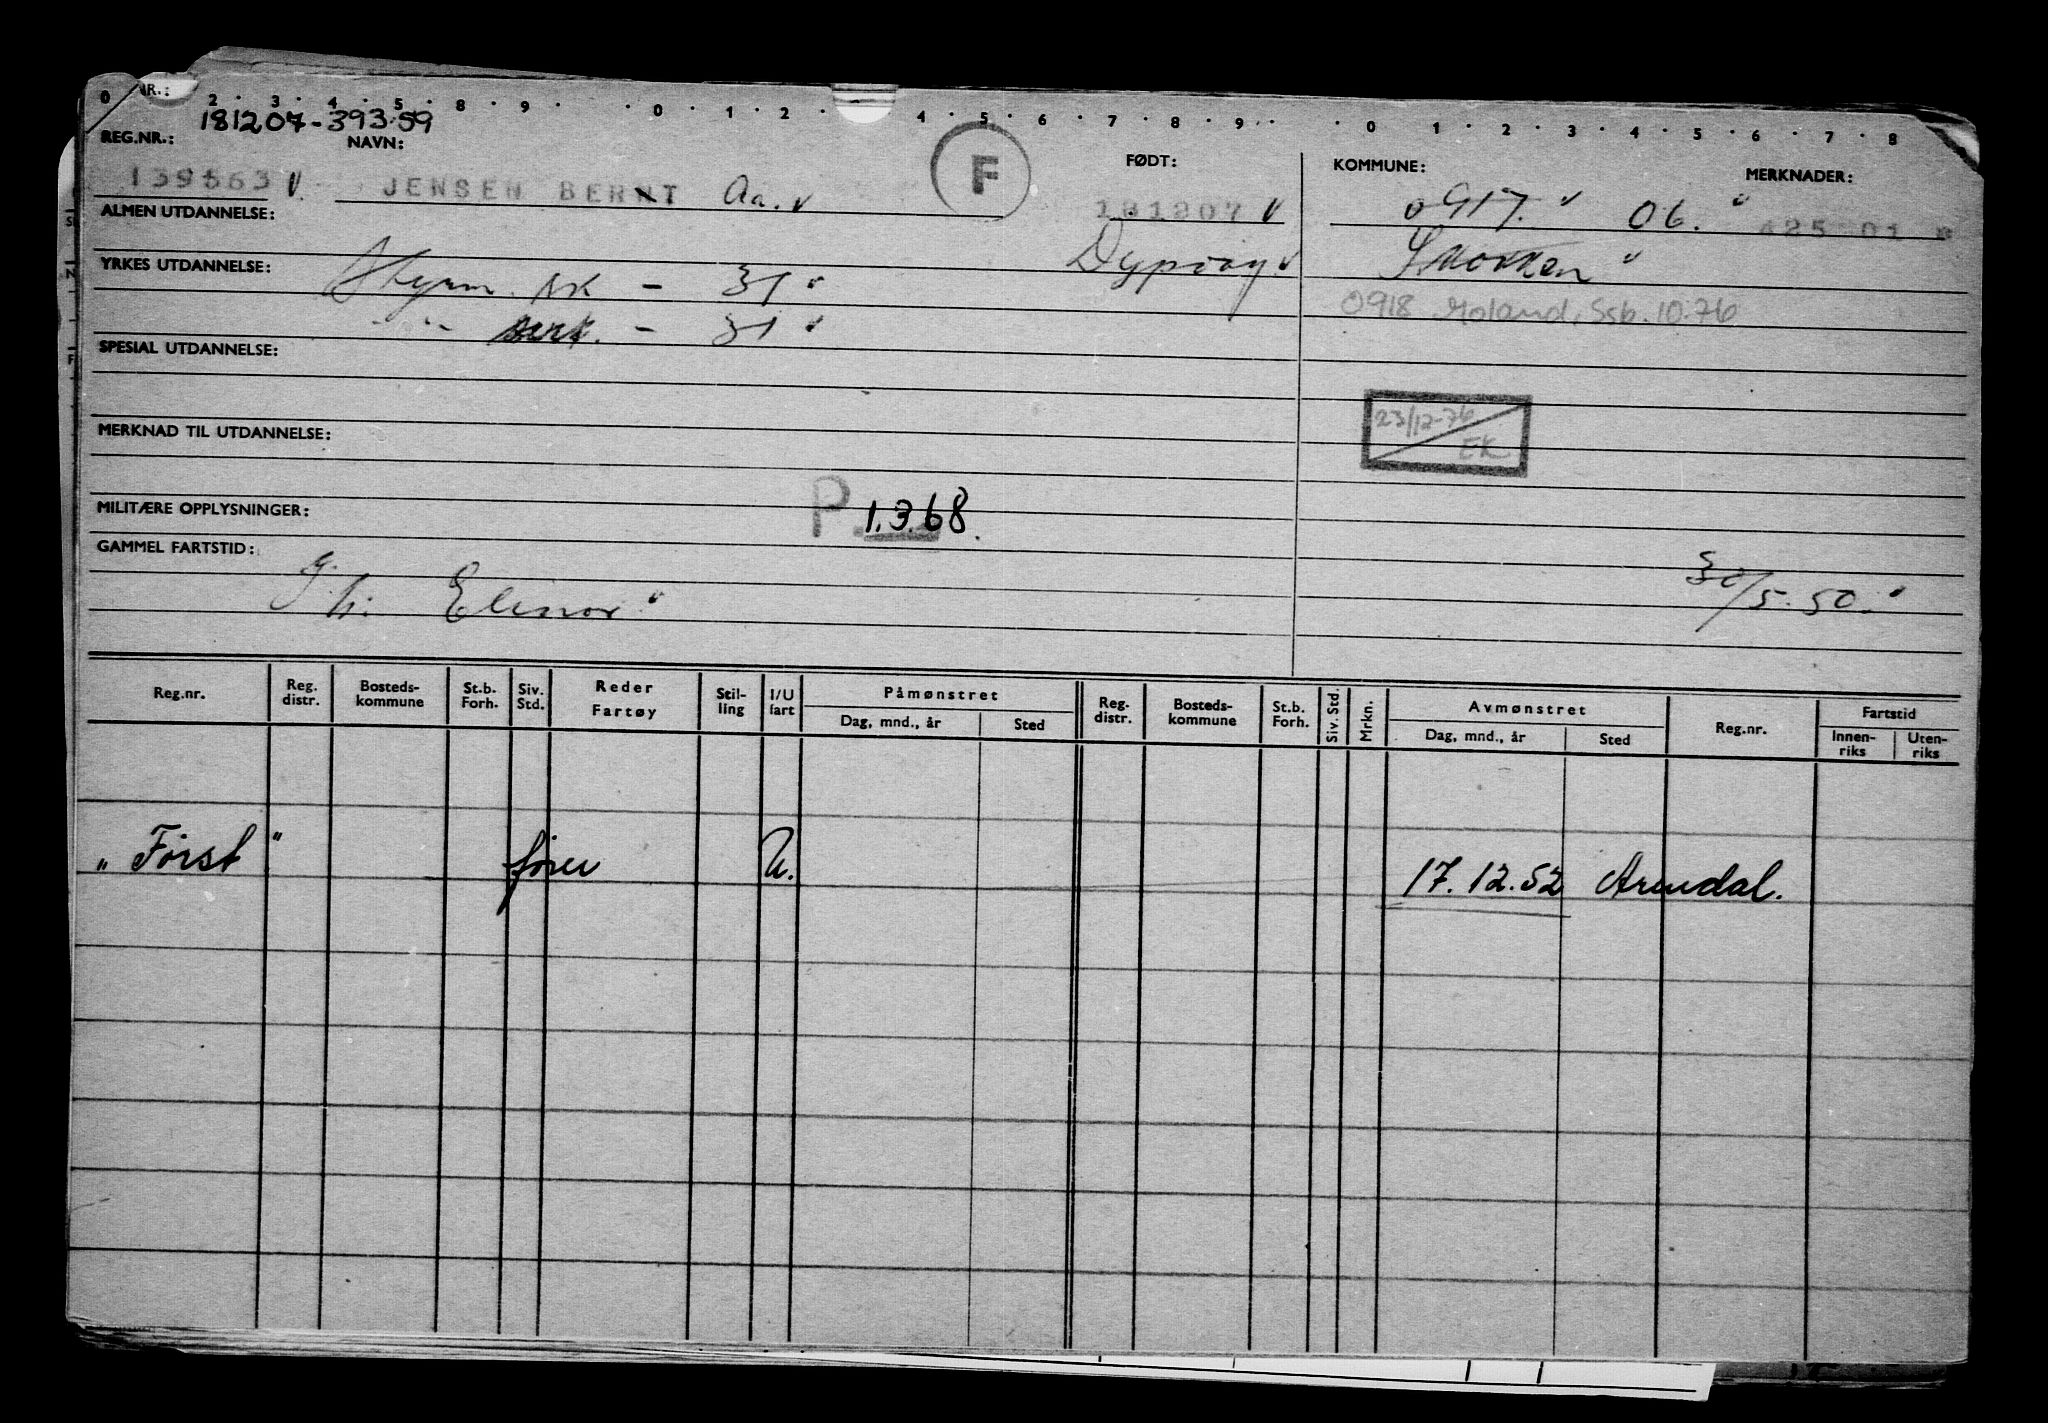 0 2 · 3 · 4 · 5 · 8 · 9 · 0 · 1 · 2 · 4 · 5 · 6 · 7 · 8 · 9 · 0 · 1 · 2 · 3 · 4 · 5 · 6 · 7 · 8
181207-39359
REG.NR.: NAVN: F FØDT: KOMMUNE: MERKNADER:
139563 JENSEN BERNT Aa. 181207 0917. 06.
ALMEN UTDANNELSE: Dypvåg
YRKES UTDANNELSE: - 31
0918 Moland, Ssb. 10.76
" - - 31
SPESIAL UTDANNELSE:
23/12-76
EK
MERKNAD TIL UTDANNELSE:
P. 1.3.68.
MILITÆRE OPPLYSNINGER:
GAMMEL FARTSTID:
Elinor 30/5.50.
Reg.nr. Reg. distr. Bosteds-kommune St.b. Forh. Siv. Std. Reder Fartøy Stil-ling I/U fart Påmønstret Reg. distr. Bosteds-kommune St.b. Forh. Siv. Std. Mrkn. Avmønstret Reg.nr. Fartstid
Dag, mnd., år Sted Dag, mnd., år Sted Innen-riks Uten-riks
"Först" fører U. 17.12.52 Arendal.